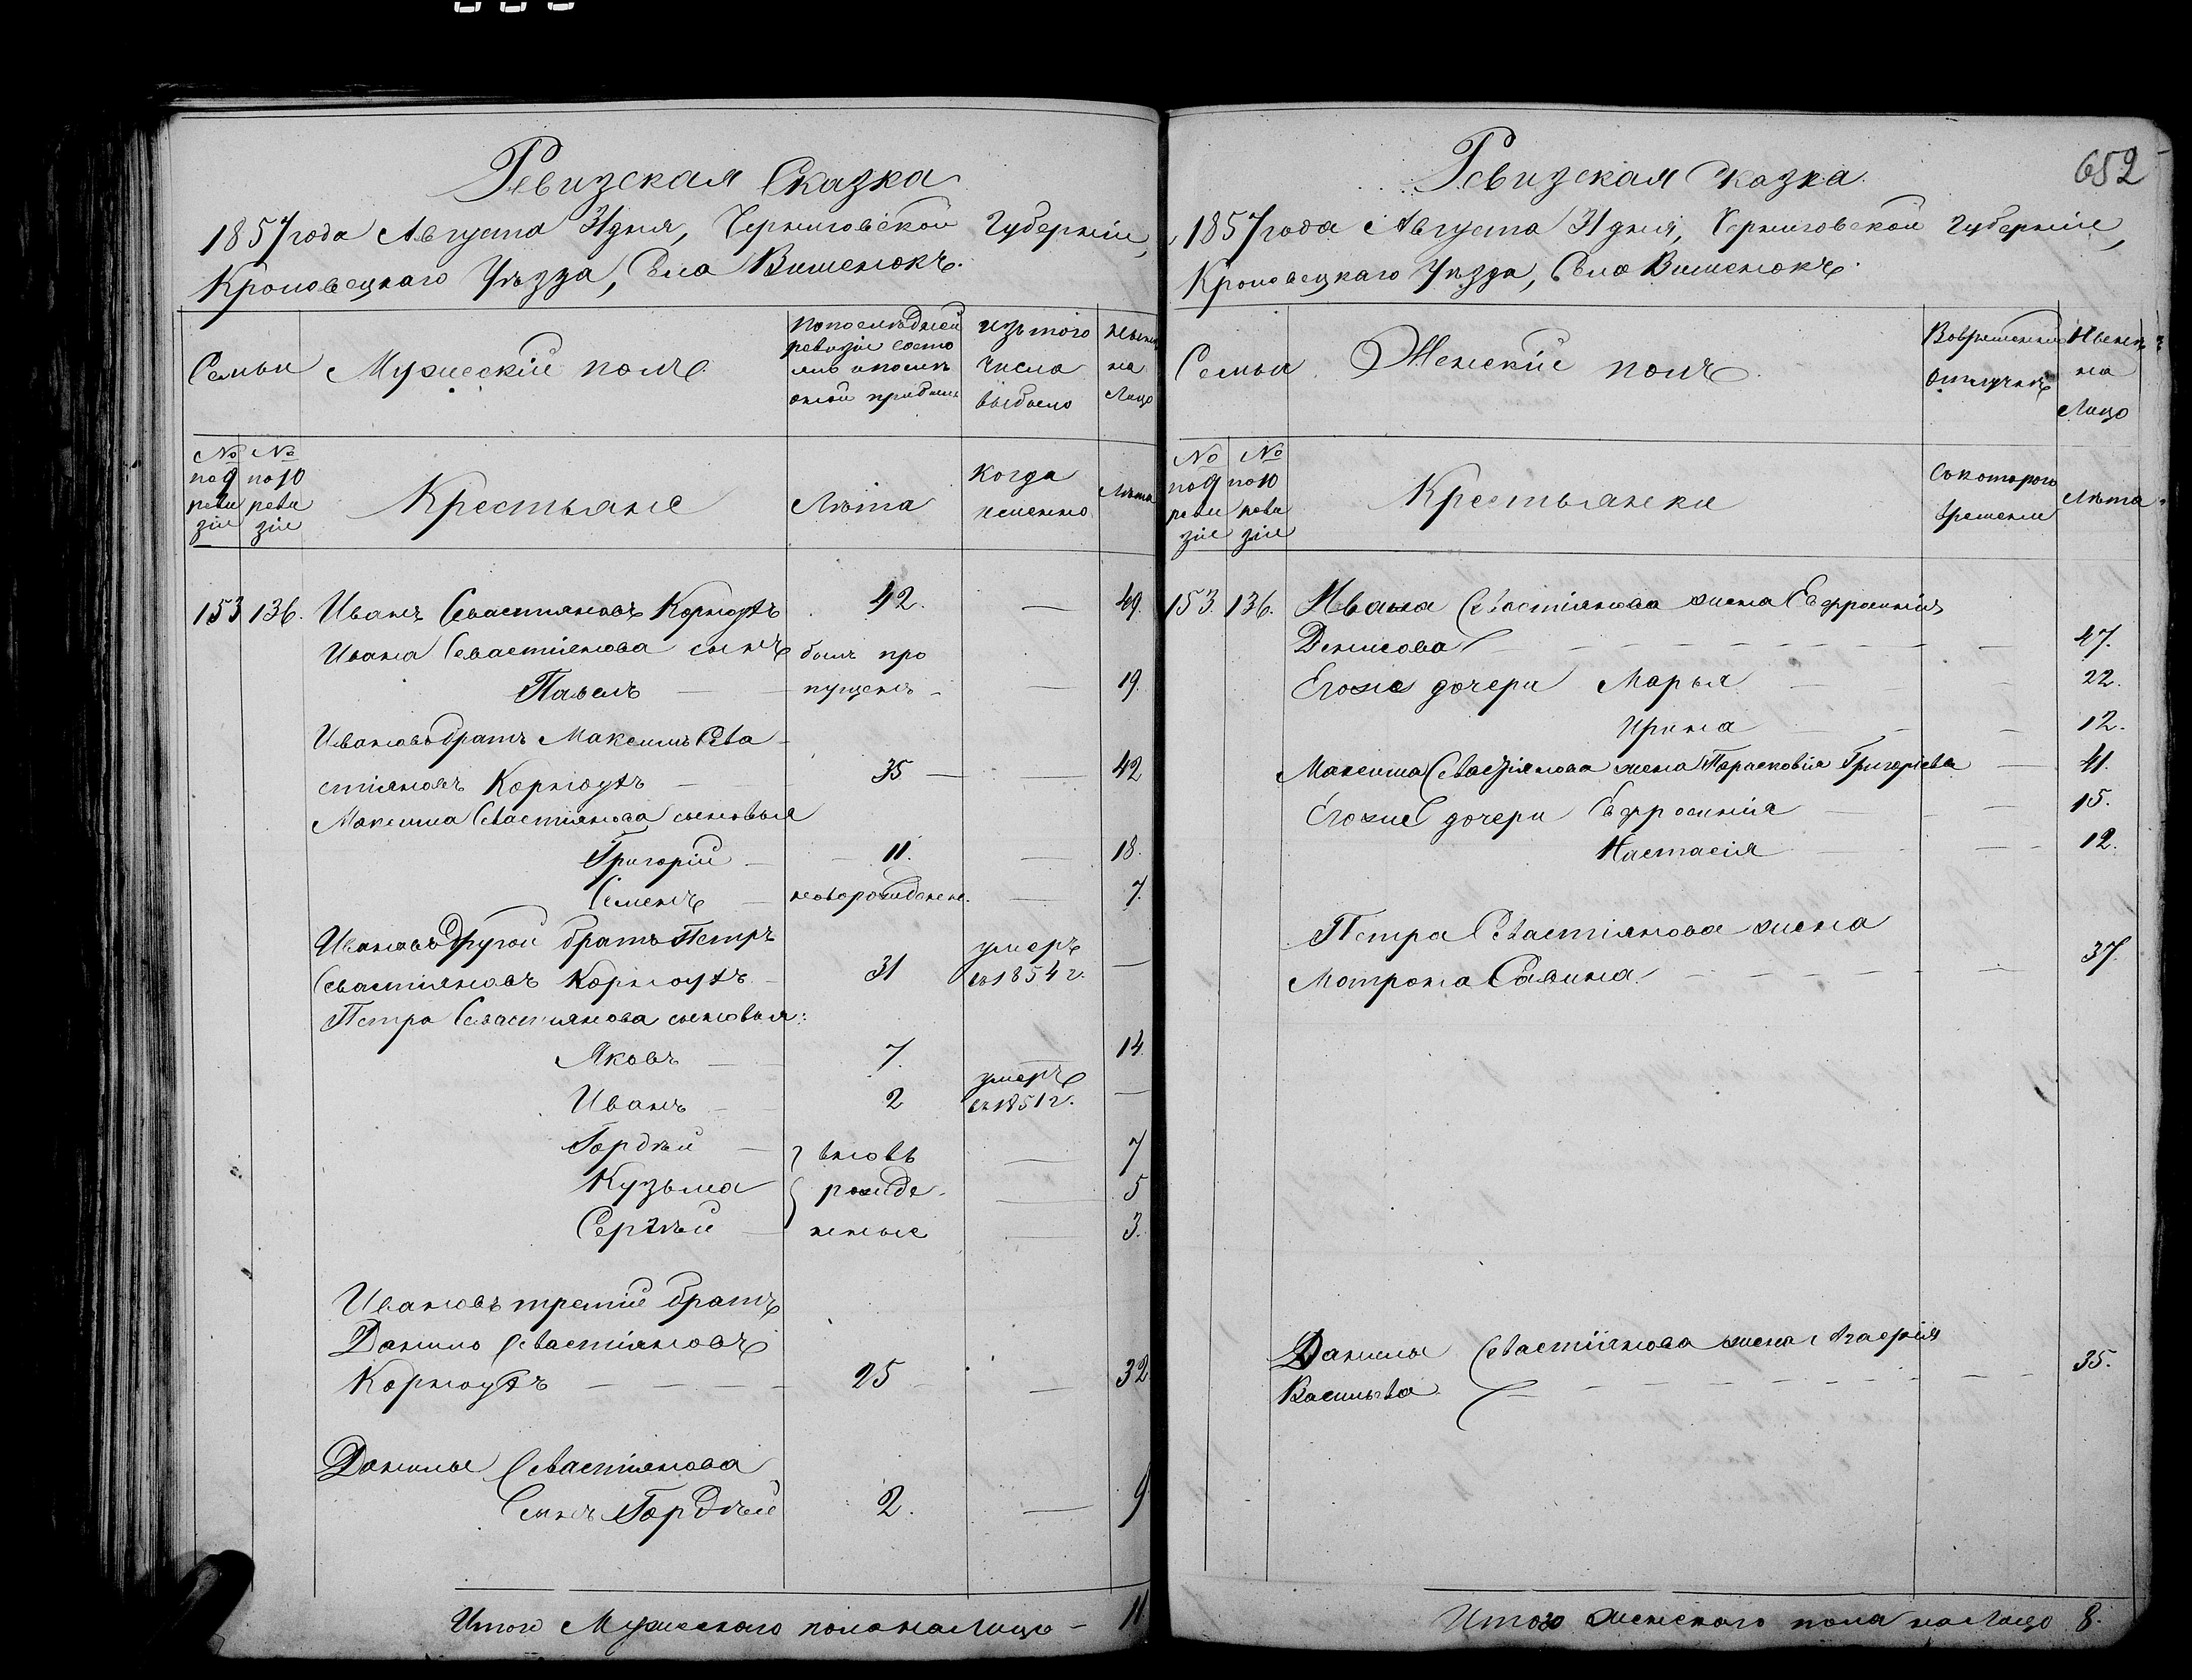 Ревизская Сказка
1857 года Августа 31 дня, Черниговской Губерніи,
Кролевецкаго Уѣзда, Села Вишенокъ.
Семьи Мужескій полъ.
По последней ревизіи состояло и после оной прибыло
изъ того числа выбыло
Ныне на Лицо
№ по 9 ревизіи
№ по 10 ревизіи
Крестьяне
Лѣта
Когда именно
Лѣта
153 136. Иванъ Севастіяновъ Корнюхъ 42. — 49.
Ивана Севастіянова сынъ былъ про
Павелъ — пущенъ — — 19.
Ивановъ братъ Максимъ Сева
стіяновъ Корнюхъ — 35 — — 42
Максима Севастіянова сыновья
Григорій — 11. — 18.
Семенъ — новорожденъ. — 7.
Ивановъ другой братъ Петръ умеръ
Севастіяновъ Корнюхъ — 31 въ 1854 г. —
Петра Севастіянова сыновья:
Яковъ — 7. 14.
умеръ
Иванъ — 2 въ 1851 г. —
Гордѣй — вновь — 7
Кузьма рожде — 5
Сергѣй — нные — 3.
Ивановъ третій братъ
Данило Севастіяновъ
Корнюхъ — — — — 25 — 32
Данилы Севастіянова
Сынъ Гордѣй 2. — 9
Итого Мужескаго пола на Лицо — 11
652
Ревизская Сказка
1857 года Августа 31 дня, Черниговской Губерніи,
Кролевецкаго Уѣзда, Села Вишенокъ.
Семьи Женскій полъ.
Во временной отлучкѣ
Ныне на Лицо
№ по 9 ревизіи
№ по 10 ревизіи
Крестьянки
Съ котораго времени
Лѣта
153. 136. Ивана Севастіянова жена Евфросинія
Денисова — — — — 47.
Егоже дочери Марья — 22.
Ирина — 12.
Максима Севастіянова жена Парасковія Григоріева — 41.
Егоже дочери Евфросинія — 15.
Настасія — 12.
Петра Севастіянова жена
Матрона Савина — — — — 37.
Данилы Севастіянова жена Агафія
Васильева — — — — 35.
Итого женскаго пола на Лицо 8.